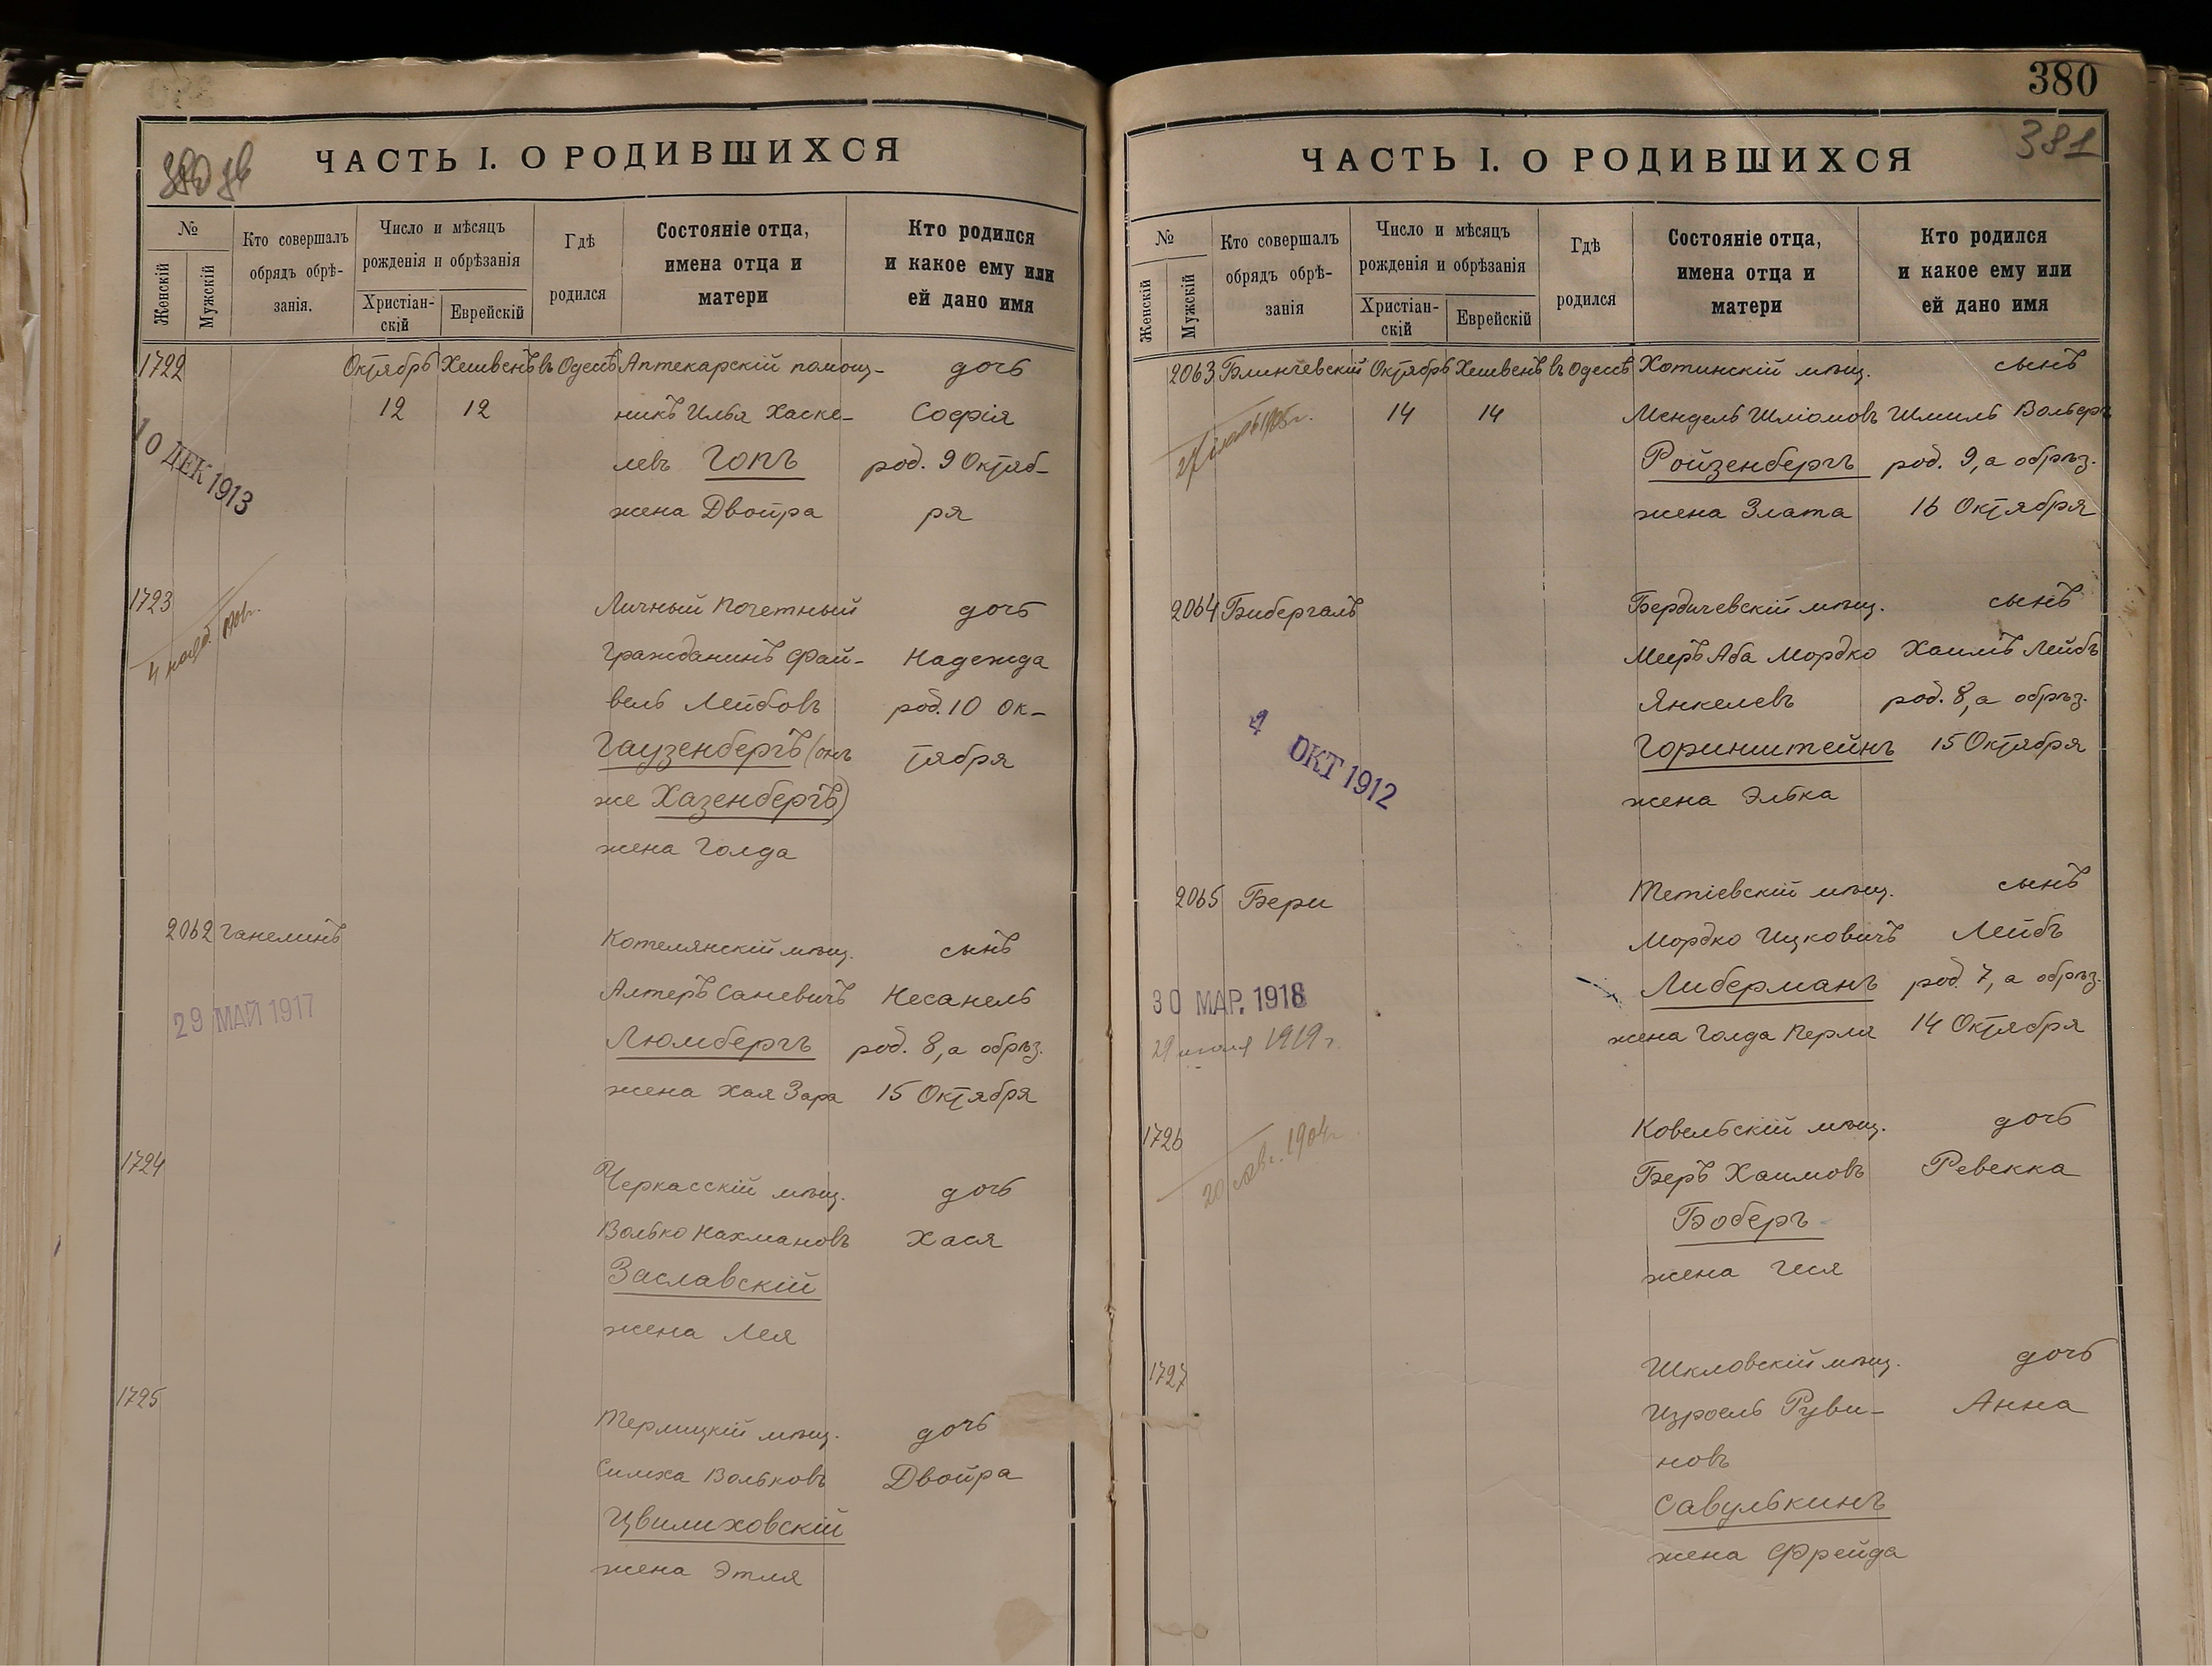 ЧАСТЬ I. О РОДИВШИХСЯ
№
Женскій
Мужскій
Кто совершалъ
обрядъ обрѣ-
занія.
Число и мѣсяцъ
рожденія и обрѣзанія
Христіан-
скій
Еврейскій
Гдѣ
родился
Состояніе отца,
имена отца и
матери
Кто родился
и какое ему или
ей дано имя
1722 Октябрь Хешвенъ въ Одессѣ Аптекарскій помощ- дочь
12 12 никъ Илья Хаске- Софія
левъ Гопъ род. 9 Октяб-
жена Двойра ря
10 ДЕК 1913
1723 Личный почетный дочь
Гражданинъ Фай- Надежда
вель Лейбовъ род. 10 Ок-
Гаузенбергъ (онъ тября
же Хазенбергъ)
жена Голда
2062 Ганелинъ Котелянскій мѣщ. сынъ
Алтеръ Саневичъ Несанель
Люмбергъ род. 8, а обрѣз.
жена Хая Зара 15 Октября
29 МАЙ 1917
1724 Черкасскій мѣщ. дочь
Волько Нахмановъ Хася
Заславскій
жена Лея
1725 Терлицкій мѣщ. дочь
Симха Вольковъ Двойра
Цвилиховскій
жена Этля
380
381
ЧАСТЬ I. О РОДИВШИХСЯ
№
Женскій
Мужскій
Кто совершалъ
обрядъ обрѣ-
занія
Число и мѣсяцъ
рожденія и обрѣзанія
Христіан-
скій
Еврейскій
Гдѣ
родился
Состояніе отца,
имена отца и
матери
Кто родился
и какое ему или
ей дано имя
2063 Блинчевскій Октябрь Хешвенъ въ Одессѣ Хотинскій мѣщ. сынъ
14 14 Мендель Шліомовъ Шмиль Вольфъ
Ройзенбергъ род. 9, а обрѣз.
жена Злата 16 Октября
2064 Бибергалъ Бердичевскій мѣщ. сынъ
Меиръ Аба Мордко Хаимъ Лейбъ
Янкелевъ род. 8, а обрѣз.
Горинштейнъ 15 Октября
жена Элька
ОКТ 1912
2065 Бери Тетіевскій мѣщ. сынъ
Мордко Ицковичъ Лейбъ
Либерманъ род. 7, а обрѣз.
жена Голда Перля 14 Октября
30 МАР. 1918
29 июля 1919 г.
1726 Ковельскій мѣщ. дочь
Беръ Хаимовъ Ревекка
Боберъ
жена Геся
1727 Шкловскій мѣщ. дочь
Изроель Руви- Анна
новъ
Савулькинъ
жена Фрейда